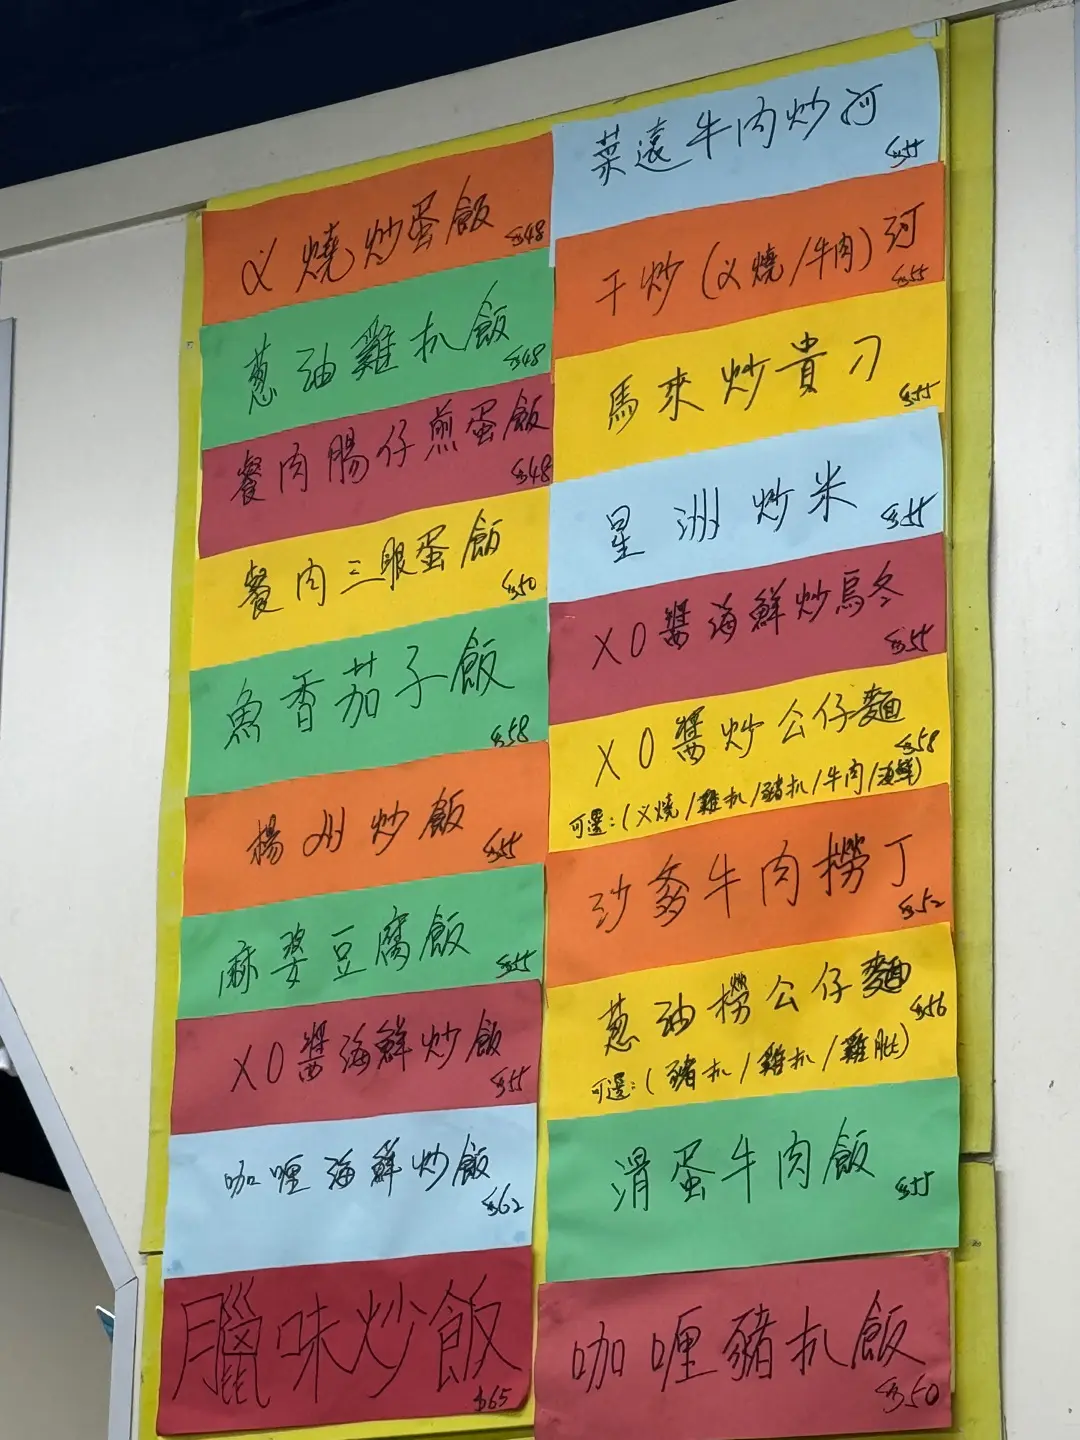 义燒炒蛋飯 $48
蔥油雞扒飯 $48
餐肉腸仔煎蛋飯 $48
餐肉三眼蛋飯 $50
魚香茄子飯 $58
楊州炒飯 $55
麻婆豆腐飯 $55
XO醬海鮮炒飯 $55
咖喱海鮮炒飯 $62
臘味炒飯 $65
菜遠牛肉炒河 $55
干炒(义燒/牛肉)河 $55
馬來炒貴刀 $55
星洲炒米 $55
XO醬海鮮炒烏冬 $55
XO醬炒公仔麵 $58
可選:(义燒/雞扒/豬扒/牛肉/海鮮)
沙爹牛肉撈丁 $52
蔥油撈公仔麵 $56
可選:(豬扒/雞扒/雞肶)
滑蛋牛肉飯 $55
咖喱豬扒飯 $50